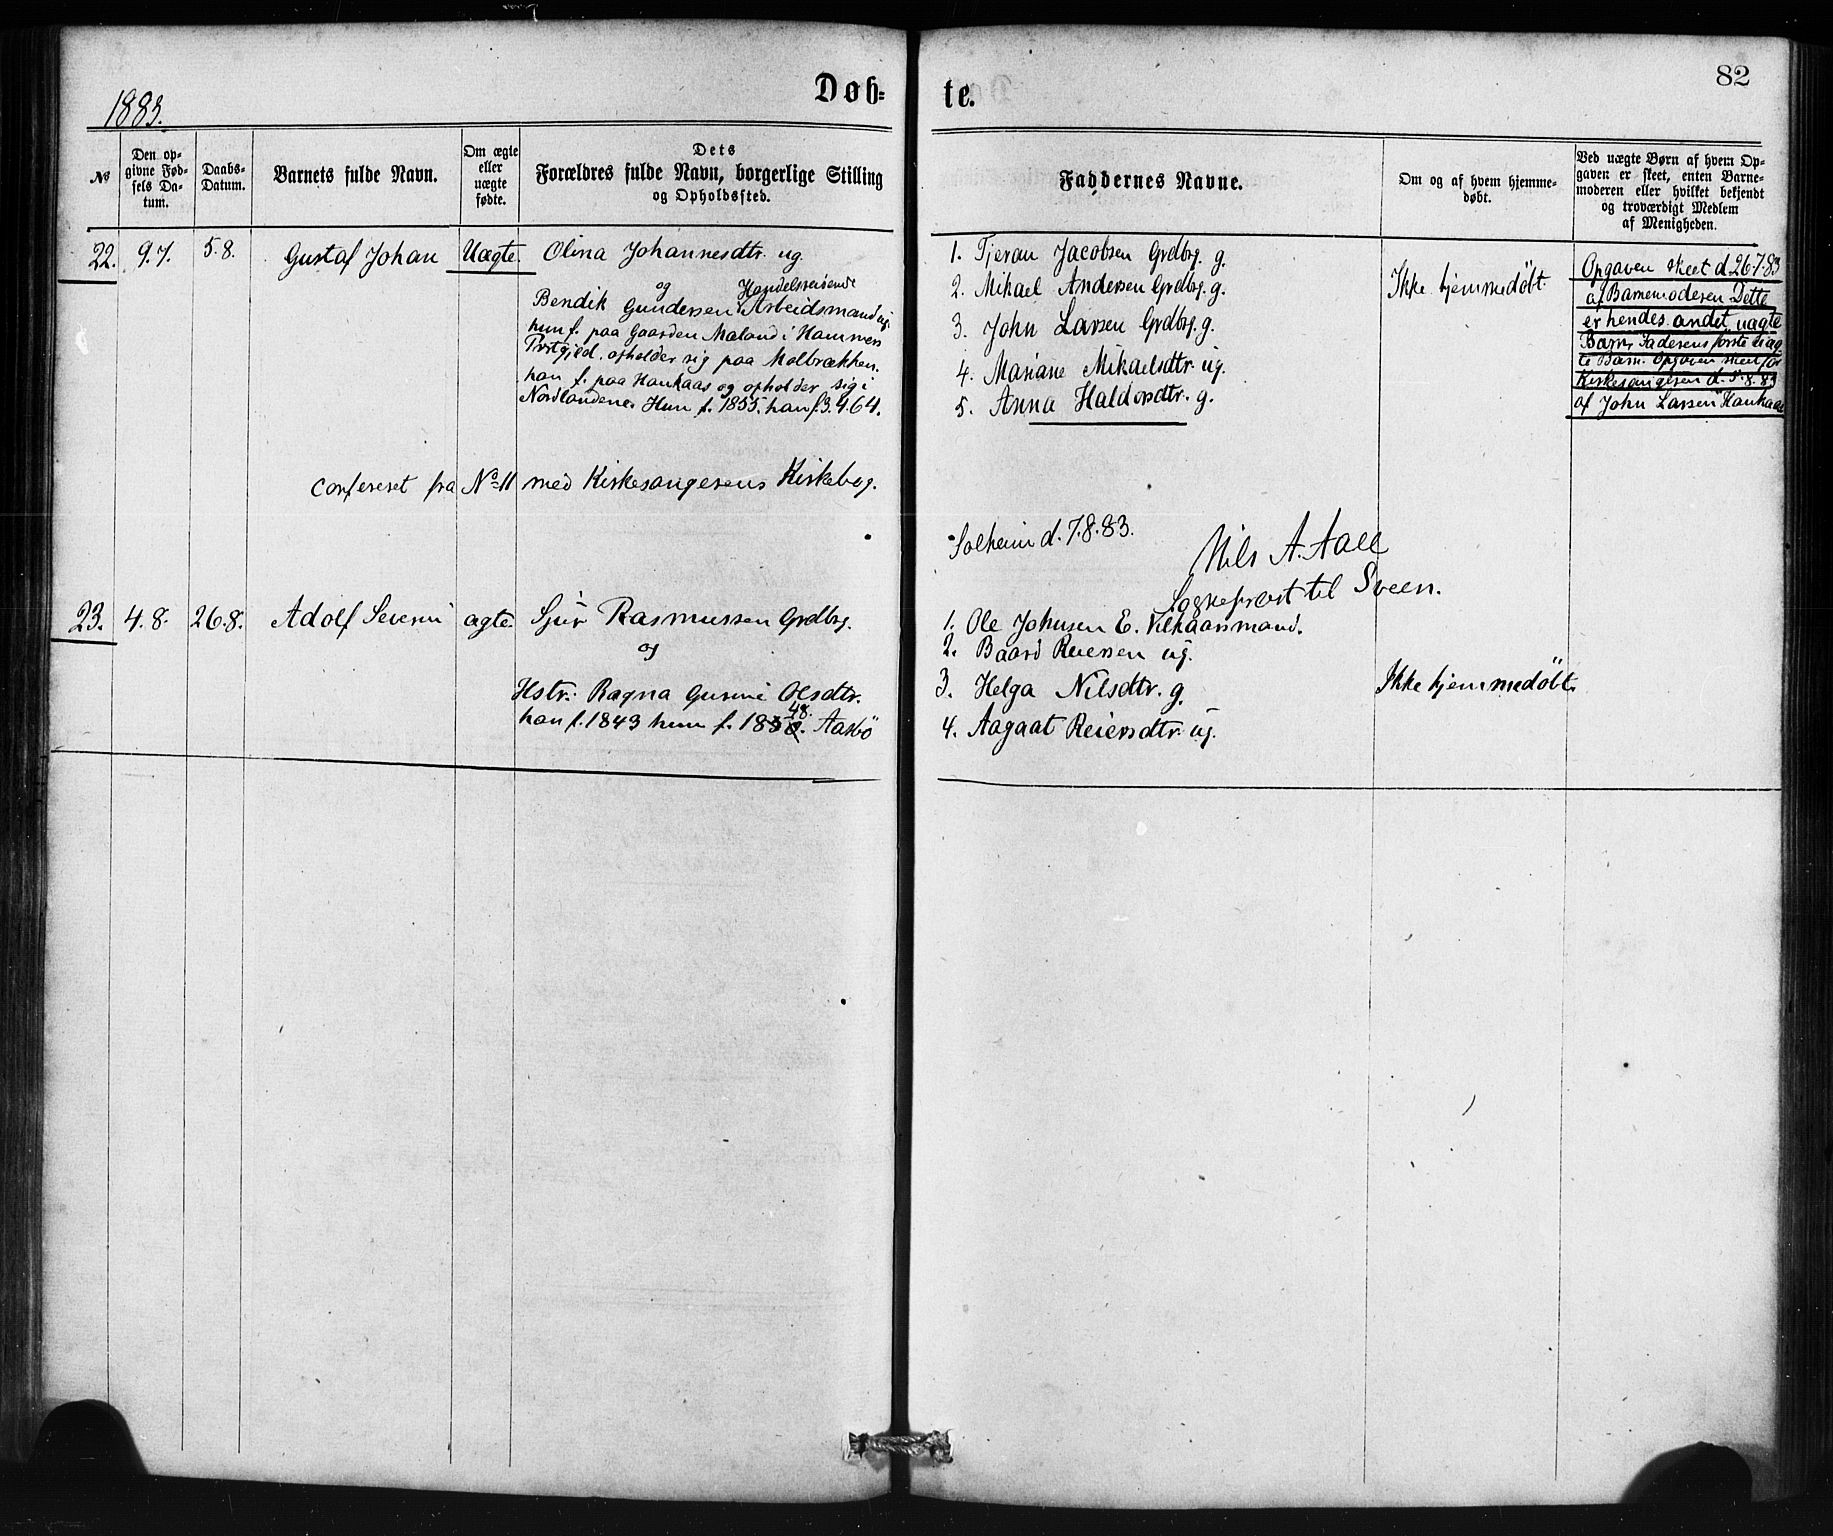 1883.
Døb-
te.
82
No
Den op-
givne Fød-
sels Da-
tum.
Daabs-
Datum.
Barnets fulde Navn.
Om ægte
eller
uægte
fødte.
Dets
Forældres fulde Navn, borgerlige Stilling
og Opholdssted.
Faddernes Navne.
Om og af hvem hjemme-
døbt.
Ved uægte Børn af hvem Op-
gaven er skeet, enten Barne-
moderen eller hvilket bekjendt
og troværdigt Medlem
af Menigheden.
22. 9.7. 5.8. Gustaf Johan Uægte.
Olina Johannesdtr. ug.
og Handelsreisende
Bendik Gundersen Arbeidsmand ug.
hun f. paa Gaarden Mæland i Hammers
Prstgjeld, opholder sig paa Molbrækken.
han f. paa Haukaas og opholder sig i
Nordlandene. Hun f. 1855. han f. 3.4.64.
1. Tjeran Jacobsen Grdbrg. g.
2. Mikael Andersen Grdbrg. g.
3. John Larsen Grdbrg. g.
4. Mariane Mikaelsdtr. ug.
5. Anna Haldorsdtr. g.
Ikke hjemmedøbt.
Opgaven skeet d. 26.7.83
af Barnemoderen Dette
er hendes andet uægte
Barn, Faderens første uæg
te Barn. Opgaven skeet for
Kirkesangeren d. 5.8.83
af John Larsen Haukaas
confereret fra No 11 med Kirkesangerens Kirkebog.
Solheim d. 7.8.83.
Nils A. Aall
Sogneprest til Sveen.
23. 4.8. 26.8. Adolf Severin ægte.
Sjur Rasmussen Grdbrg.
og
Hstr.: Ragna Gurine Olsdtr.
48.
han f. 1843 hun f. 1850. Aasbö
1. Ole Johnsen E. Vilkaarsmand.
2. Baard Reiersen ug.
3. Helga Nilsdtr. g.
4. Aagaat Reiersdtr. ug.
Ikke hjemmedøbt.